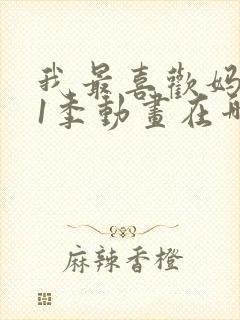 我最喜歡妈
1季動畫在哪
麻辣香橙